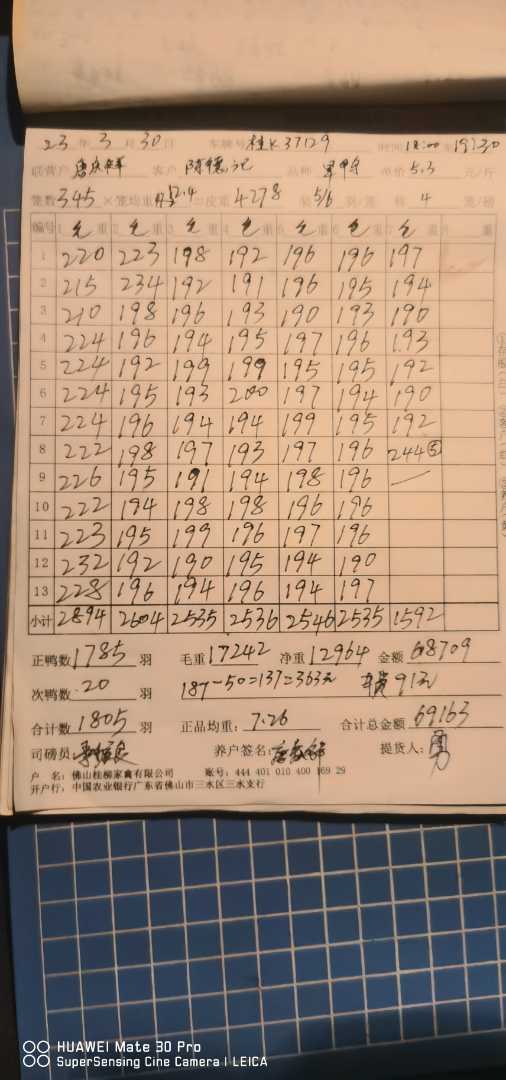 23 年 3 月 30 日 车牌号 桂K37129 时间 18:00 19:30
联营户 客户 陈德记 品种 单价 5.3 元/斤
笼数 345 × 笼均重 12.4 = 皮重 4278 装 5/6 羽/笼 称 4 笼/磅
编号 1 毛 重 2 毛 重 3 毛 重 4 毛 重 5 毛 重 6 毛 重 7 毛 重 8 重
1 220 223 198 192 196 196 197
2 215 234 192 191 196 195 194
3 210 198 196 193 190 193 190
4 224 196 194 195 197 196 193
5 224 192 199 199 195 195 192
6 224 195 193 200 197 194 190
7 224 196 194 194 199 195 192
8 222 198 197 193 197 196 244⑤
9 226 195 191 194 198 196 —
10 222 194 198 198 196 196
11 223 195 199 196 197 196
12 232 192 190 195 194 190
13 228 196 194 196 194 197
小计 2894 2604 2535 2536 2546 2535 1592
正鸭数 1785 羽 毛重 17242 净重 12964 金额 68709
次鸭数 20 羽 187-50=137=363元 91元
合计数 1805 羽 正品均重: 7.26 合计总金额 69163
司磅员 养户签名: 提货人:
户 名: 佛山桂柳家禽有限公司 账号: 444 401 010 400 169 29
开户行: 中国农业银行广东省佛山市三水区三水支行
HUAWEI Mate 30 Pro
SuperSensing Cine Camera | LEICA